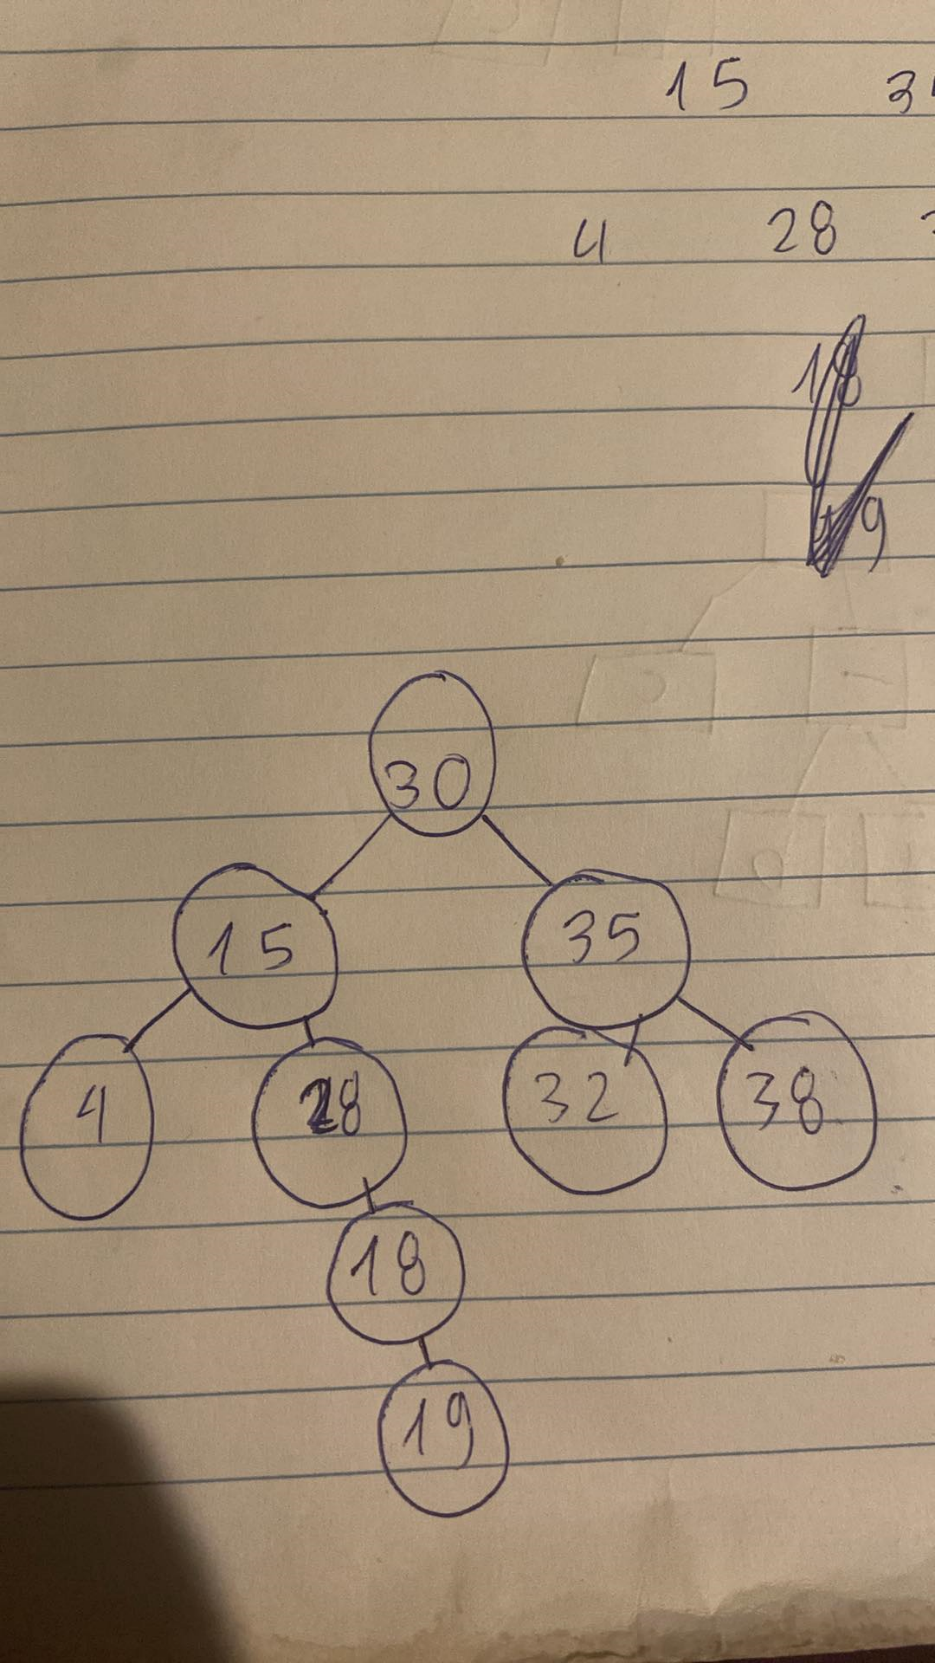 15
4 28
18
19
30
15 35
4 28 32 38
18
19